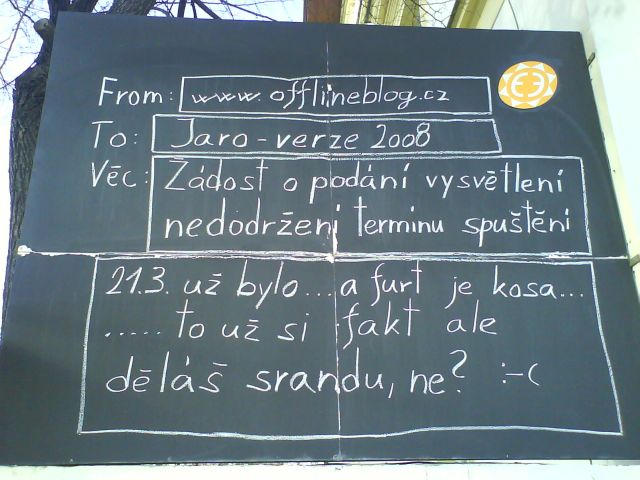 From: www.offlineblog.cz
To: Jaro - verze 2008
Věc: Žádost o podání vysvětlení
nedodržení terminu spuštění
21.3. už bylo....a furt je kosa...
...... to už si fakt ale
děláš srandu, ne? :-(